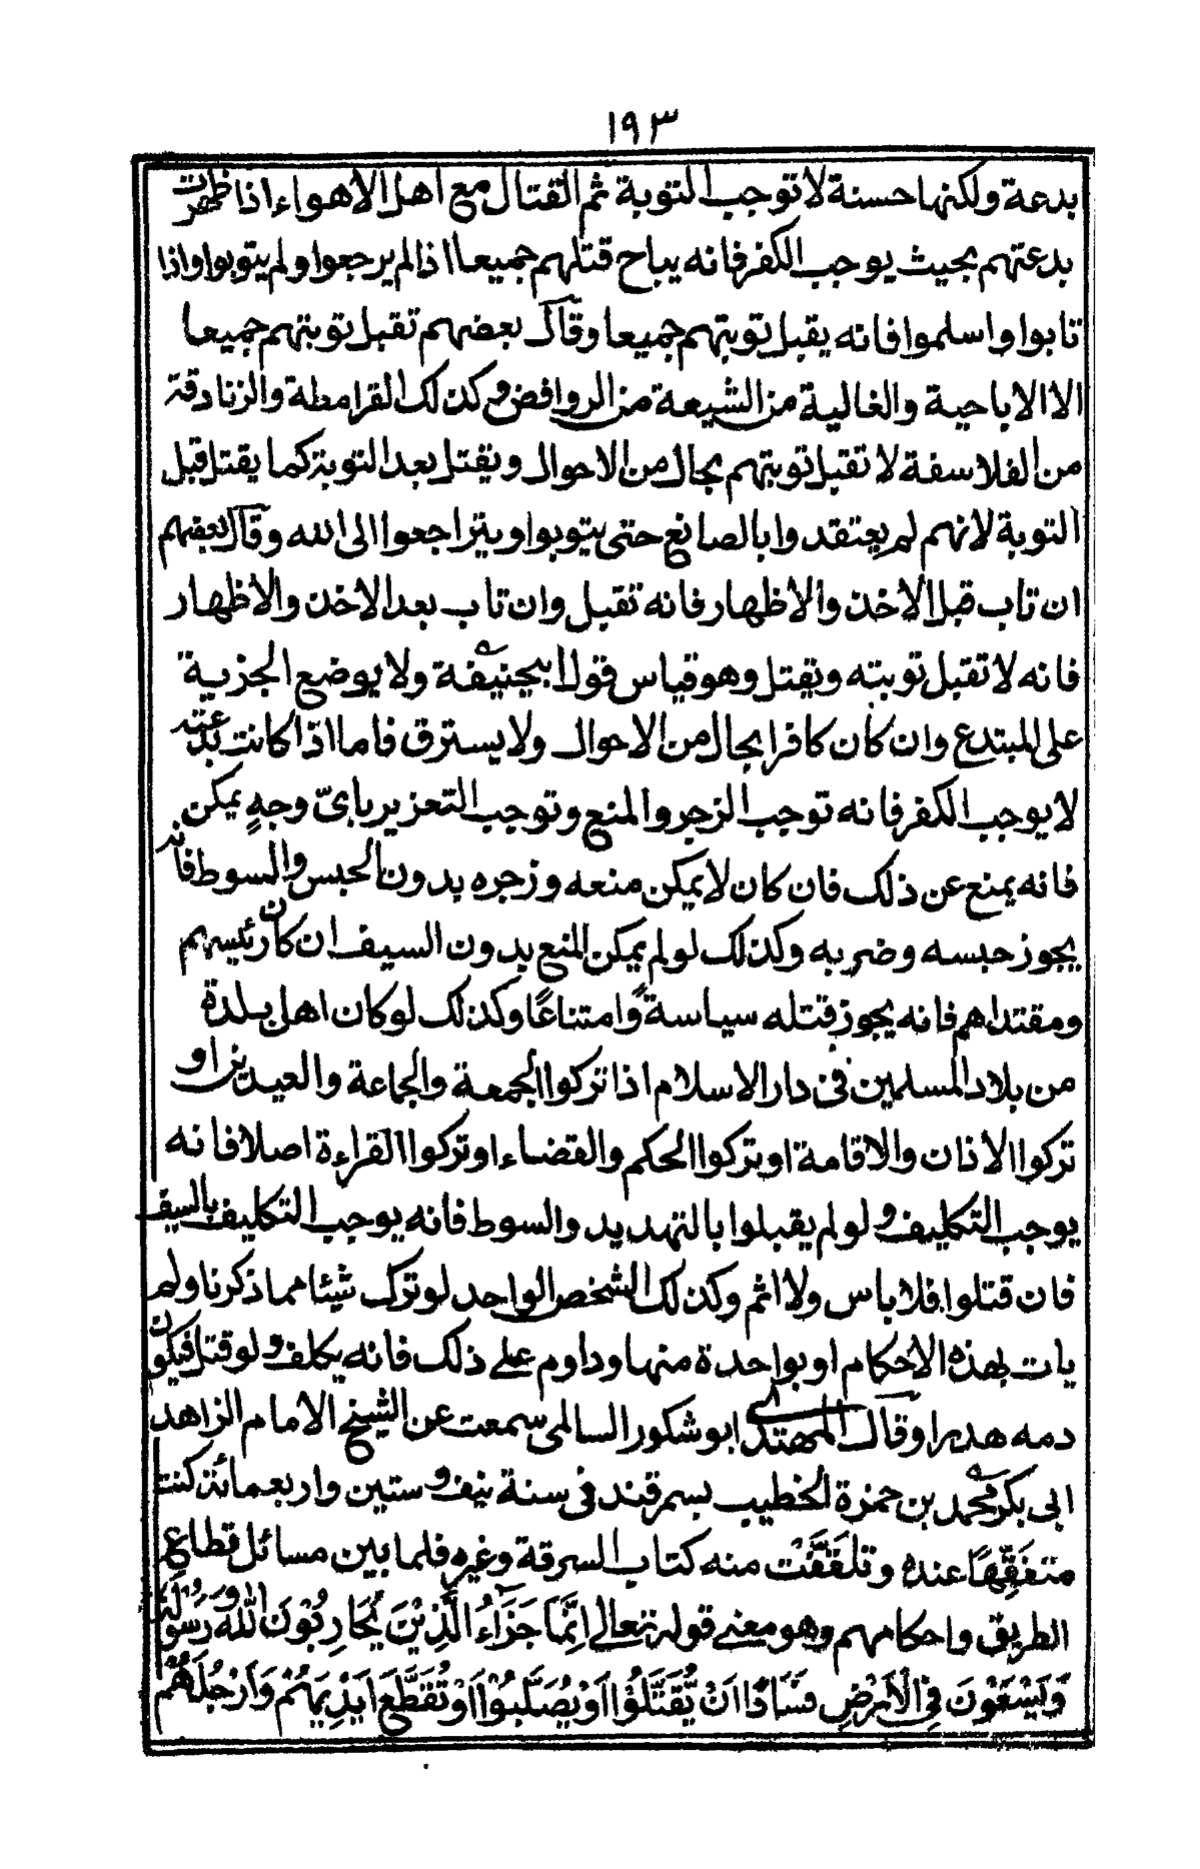 ١٩٣
بدعة ولكنها حسنة لا توجب التوبة ثم القتال مع اهل الاهواء اذا ظهرت
بدعتهم بحيث يوجب الكفر فانه يباح قتلهم جميعا اذا لم يرجعوا ولم يتوبوا واذا
تابوا واسلموا فانه يقبل توبتهم جميعا وقال بعضهم تقبل توبتهم جميعا
الا الاباحية والغالية من الشيعة من الروافض وكذلك القرامطة والزنادقة
من الفلاسفة لا تقبل توبتهم بحال من الاحوال ويقتل بعد التوبة كما يقتل قبل
التوبة لانهم لم يعتقدوا بالصانع حتى يتوبوا ويتراجعوا الى الله وقال بعضهم
ان تاب قبل الاخذ والاظهار فانه تقبل وان تاب بعد الاخذ والاظهار
فانه لا تقبل توبته ويقتل وهو قياس قول ابيحنيفة ولا يوضع الجزية
على المبتدع وان كان كافرا بحال من الاحوال ولا يسترق فاما اذا كانت بدعته
لا يوجب الكفر فانه توجب الزجر والمنع وتوجب التعزير باىّ وجهٍ يمكن
فانه يمنع عن ذلك فان كان لا يمكن منعه وزجره بدون الحبس والسوط فانه
يجوز حبسه وضربه وكذلك لو لم يمكن المنع بدون السيف ان كان رئيسهم
ومقتداهم فانه يجوز قتله سياسةً وامتناعًا وكذلك لو كان اهل بلدة
من بلاد المسلمين فى دار الاسلام اذا تركوا الجمعة والجماعة والعيدين او
تركوا الاذان والاقامة او تركوا الحكم والقضاء او تركوا القراءة اصلا فانه
يوجب التكليف ولو لم يقبلوا بالتهديد والسوط فانه يوجب التكليف بالسيف
فان قتلوا فلا باس ولا اثم وكذلك الشخص الواحد لو ترك شيئا مما ذكرنا ولم
يات بهذه الاحكام او بواحدة منها وداوم على ذلك فانه يكلف ولو قتل فيكون
دمه هدرا وقال المهتدى ابو شكور السالمى سمعت عن الشيخ الامام الزاهد
ابى بكر محمد بن حمزة الخطيب بسمرقند فى سنة نيف وستين واربعمائة كنت
متفقِّهًا عنده وتلقَّفْت منه كتاب السرقة وغيره فلما بين مسائل قطاع
الطريق واحكامهم وهو معنى قوله تعالى اِنَّمَا جَزَاءُ الَّذِيْنَ يُحَارِبُوْنَ اللهَ وَرَسُوْلَهٗ
وَيَسْعَوْنَ فِى الْاَرْضِ فَسَادًا اَنْ يُّقَتَّلُوْا اَوْ يُصَلَّبُوْا اَوْ تُقَطَّعَ اَيْدِيْهِمْ وَاَرْجُلُهُمْ